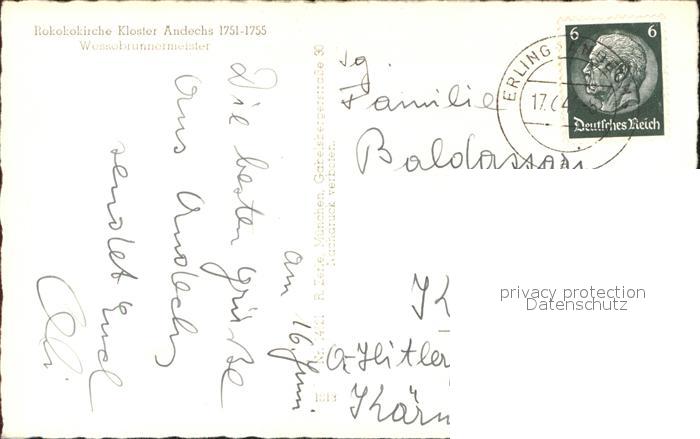 Rokokokirche Kloster Andechs 1751-1755
Wessobrunnermeister
Die besten Grüße
aus Andechs
sendet Euch
am 16. Juni.
R. Zehe, München, Gabelsbergerstraße 30
Nachdruck verboten.
Familie
Baldassari
K
A-Hitler
Kärn
ERLING
17.
6 6
Deutsches Reich
privacy protection
Datenschutz